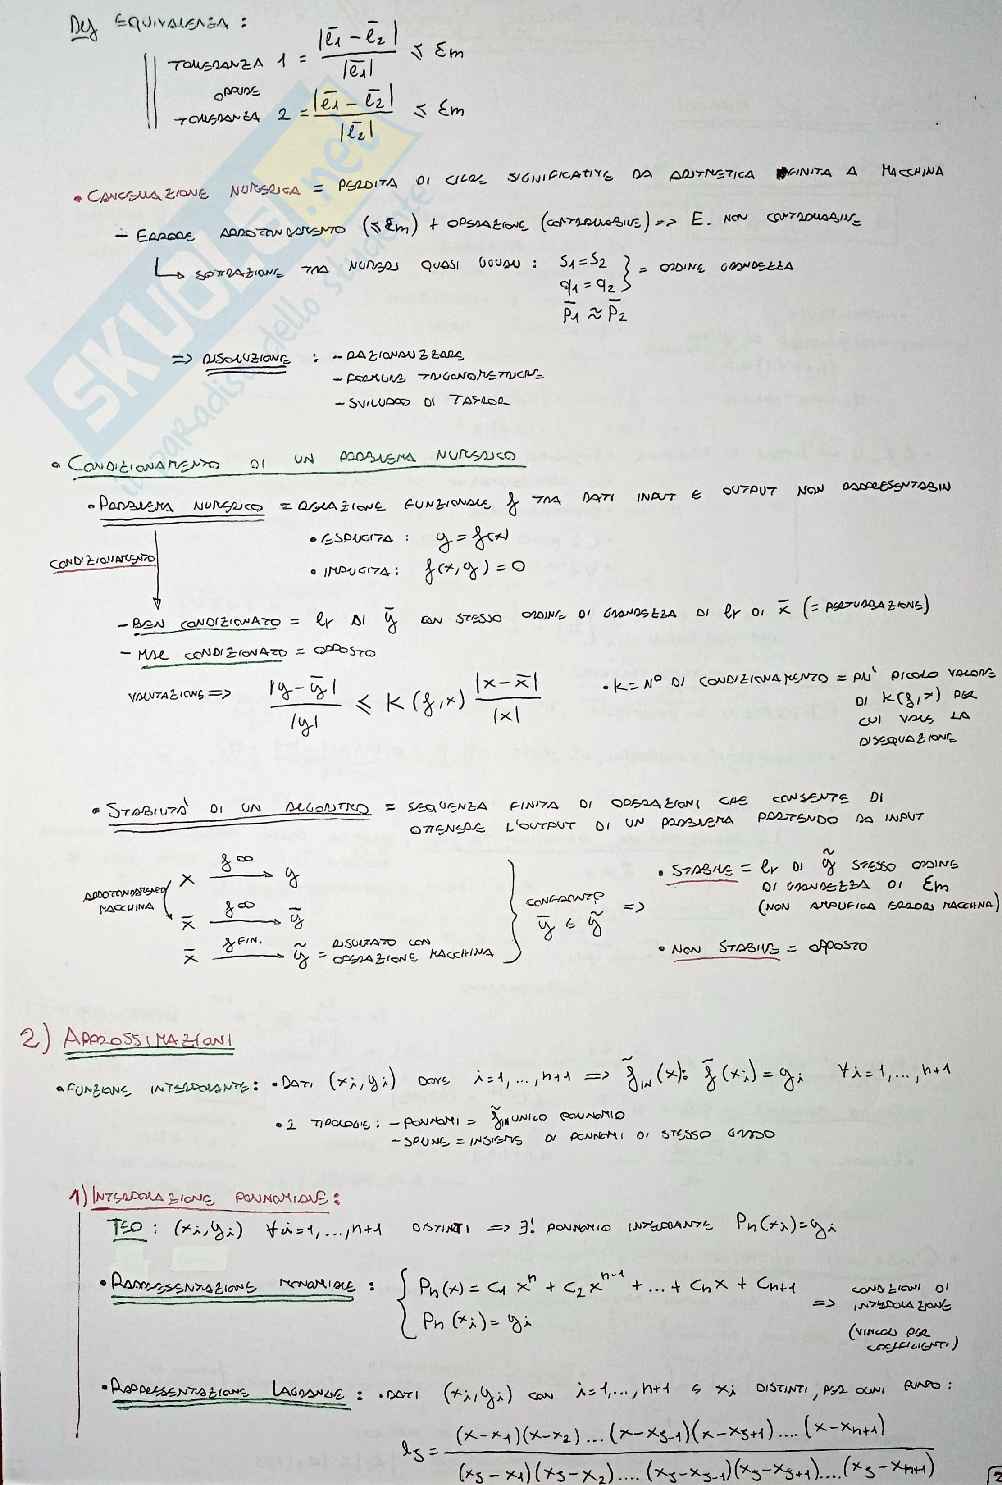 Def EQUIVALENZA :
TOLLERANZA 1 = |l̄1 - l̄2| / |l̄1| ≤ εm
OPPURE
TOLLERANZA 2 = |l̄1 - l̄2| / |l̄2| ≤ εm
• CANCELLAZIONE NUMERICA = PERDITA DI CIFRE SIGNIFICATIVE DA ARITMETICA FINITA A MACCHINA
- ERRORE ARROTONDAMENTO (≤ εm) + OPERAZIONE (CONTROLLABILE) => E. NON CONTROLLABILE
↳ SOTTRAZIONE TRA NUMERI QUASI UGUALI : S1 = S2 } = ORDINE GRANDEZZA
q1 = q2
p̄1 ≈ p̄2
=> RISOLUZIONE : - RAZIONALIZZARE
- FORMULE TRIGONOMETRICHE
- SVILUPPO DI TAYLOR
• CONDIZIONAMENTO DI UN PROBLEMA NUMERICO
• PROBLEMA NUMERICO = RELAZIONE FUNZIONALE f TRA DATI INPUT E OUTPUT NON RAPPRESENTABILI
• ESPLICITA : y = f(x)
CONDIZIONAMENTO
• IMPLICITA : f(x,y) = 0
- BEN CONDIZIONATO = lr DI ȳ CON STESSO ORDINE DI GRANDEZZA DI lr DI x̄ (= PERTURBAZIONE)
- MAL CONDIZIONATO = OPPOSTO
VALUTAZIONE => |y - ȳ| / |y| ≤ K(f,x) |x - x̄| / |x|
• K = N° DI CONDIZIONAMENTO = PIU' PICCOLO VALORE
DI K(f,x) PER
CUI VALE LA
DISEQUAZIONE
• STABILITA' DI UN ALGORITMO = SEQUENZA FINITA DI OPERAZIONI CHE CONSENTE DI
OTTENERE L'OUTPUT DI UN PROBLEMA PARTENDO DA INPUT
ARROTONDAMENTO
MACCHINA
x f∞ → y
x̄ f∞ → ȳ
x̄ f FIN. → ỹ = RISULTATO CON
OPERAZIONE MACCHINA
CONFRONTO
ȳ E ỹ =>
• STABILE = lr DI ỹ STESSO ORDINE
DI GRANDEZZA DI εm
(NON AMPLIFICA ERRORI MACCHINA)
• NON STABILE = OPPOSTO
2) APPROSSIMAZIONI
• FUNZIONE INTERPOLANTE : • DATI (xi, yi) DOVE i = 1, ..., n+1 => f̃IN (x): f̃(xi) = yi ∀i = 1, ..., n+1
• 2 TIPOLOGIE : - POLINOMI = f̃IN UNICO POLINOMIO
- SPLINE = INSIEME DI POLINOMI DI STESSO GRADO
1) INTERPOLAZIONE POLINOMIALE :
TEO : (xi, yi) ∀i = 1, ..., n+1 DISTINTI => ∃! POLINOMIO INTERPOLANTE Pn(xi) = yi
• RAPPRESENTAZIONE MONOMIALE : { Pn(x) = c1 x^n + c2 x^n-1 + ... + cn x + cn+1
Pn(xi) = yi
=> CONDIZIONI DI
INTERPOLAZIONE
(VINCOLI PER
COEFFICIENTI)
• RAPPRESENTAZIONE LAGRANGE : • DATI (xi, yi) CON i = 1, ..., n+1 E xi DISTINTI, PER OGNI PUNTO :
lj = (x-x1)(x-x2) ... (x-xj-1)(x-xj+1) .... (x-xn+1) / (xj-x1)(xj-x2) .... (xj-xj-1)(xj-xj+1) .... (xj-xn+1)
2
SKUOLA.net
il paradiso dello studente